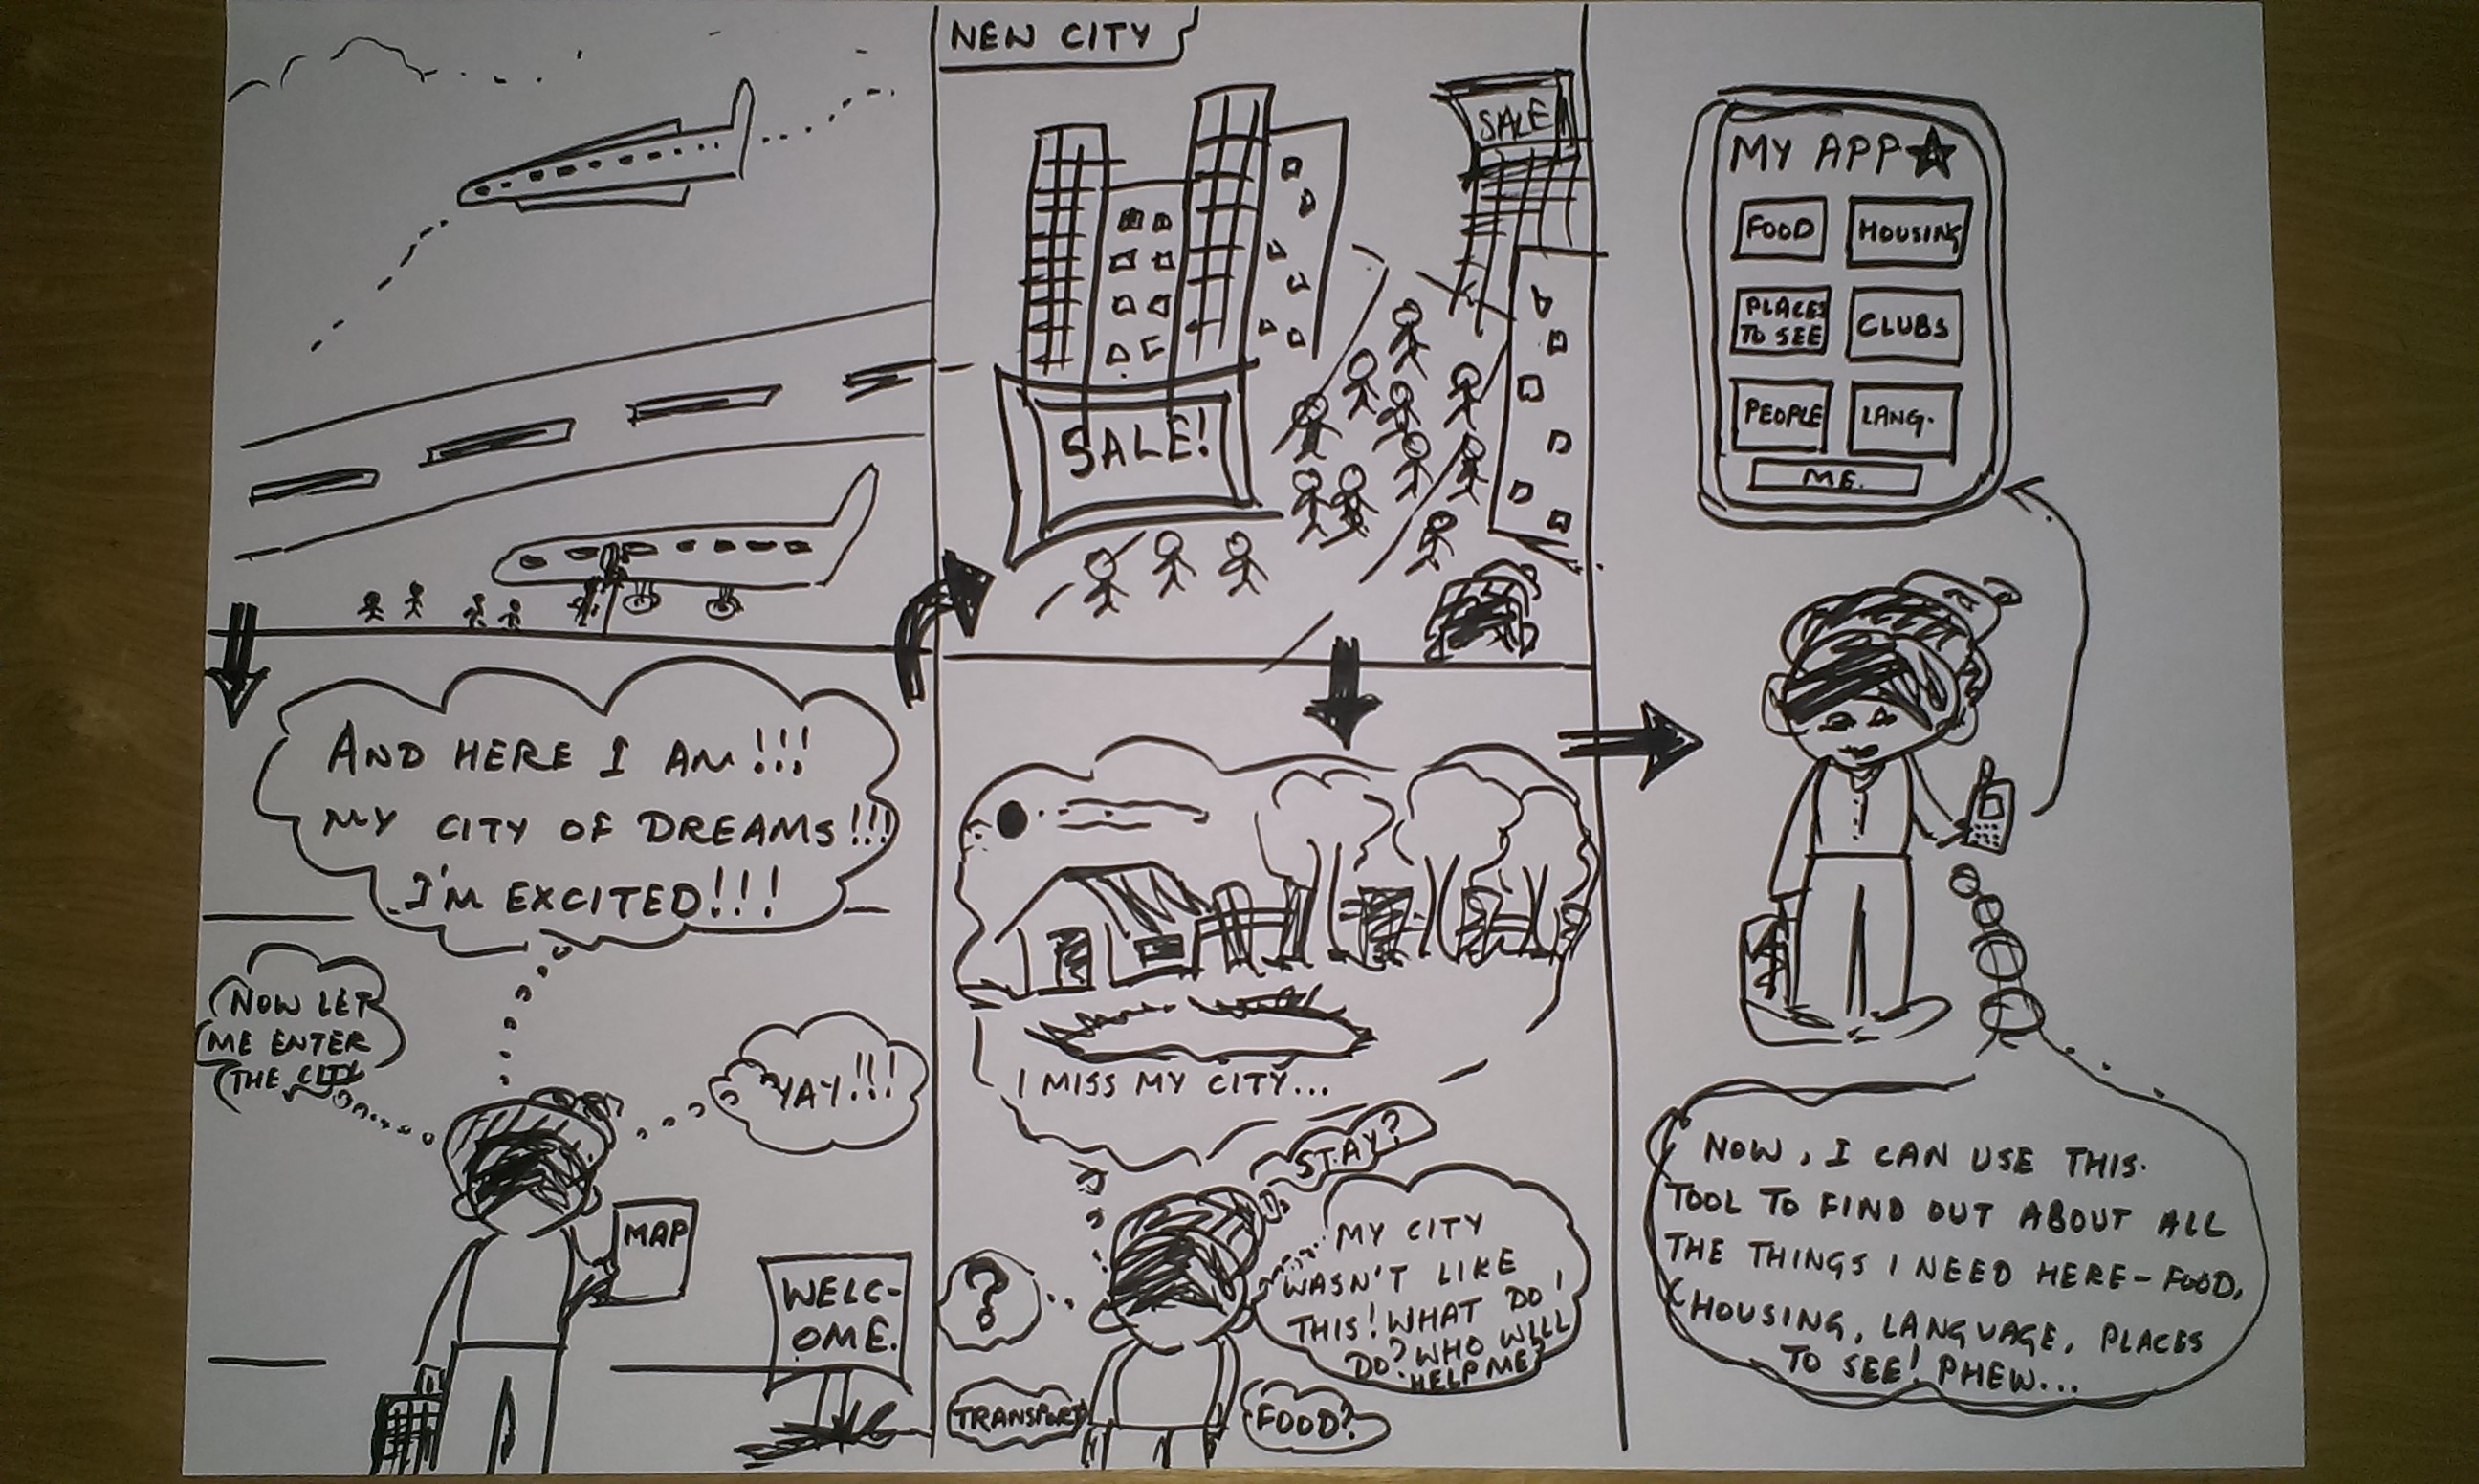 AND HERE I AM!!!
MY CITY OF DREAMS!!!
I'M EXCITED!!!
NOW LET
ME ENTER
THE CITY
YAY!!!
MAP
WELC-
OME.
NEW CITY
SALE
SALE!
I MISS MY CITY...
STAY?
MY CITY
WASN'T LIKE
THIS! WHAT DO I
DO? WHO WILL
HELP ME?
?
TRANSPORT
FOOD?
MY APP
FOOD
HOUSING
PLACES
TO SEE
CLUBS
PEOPLE
LANG.
ME.
NOW, I CAN USE THIS.
TOOL TO FIND OUT ABOUT ALL
THE THINGS I NEED HERE - FOOD,
HOUSING, LANGUAGE, PLACES
TO SEE! PHEW...